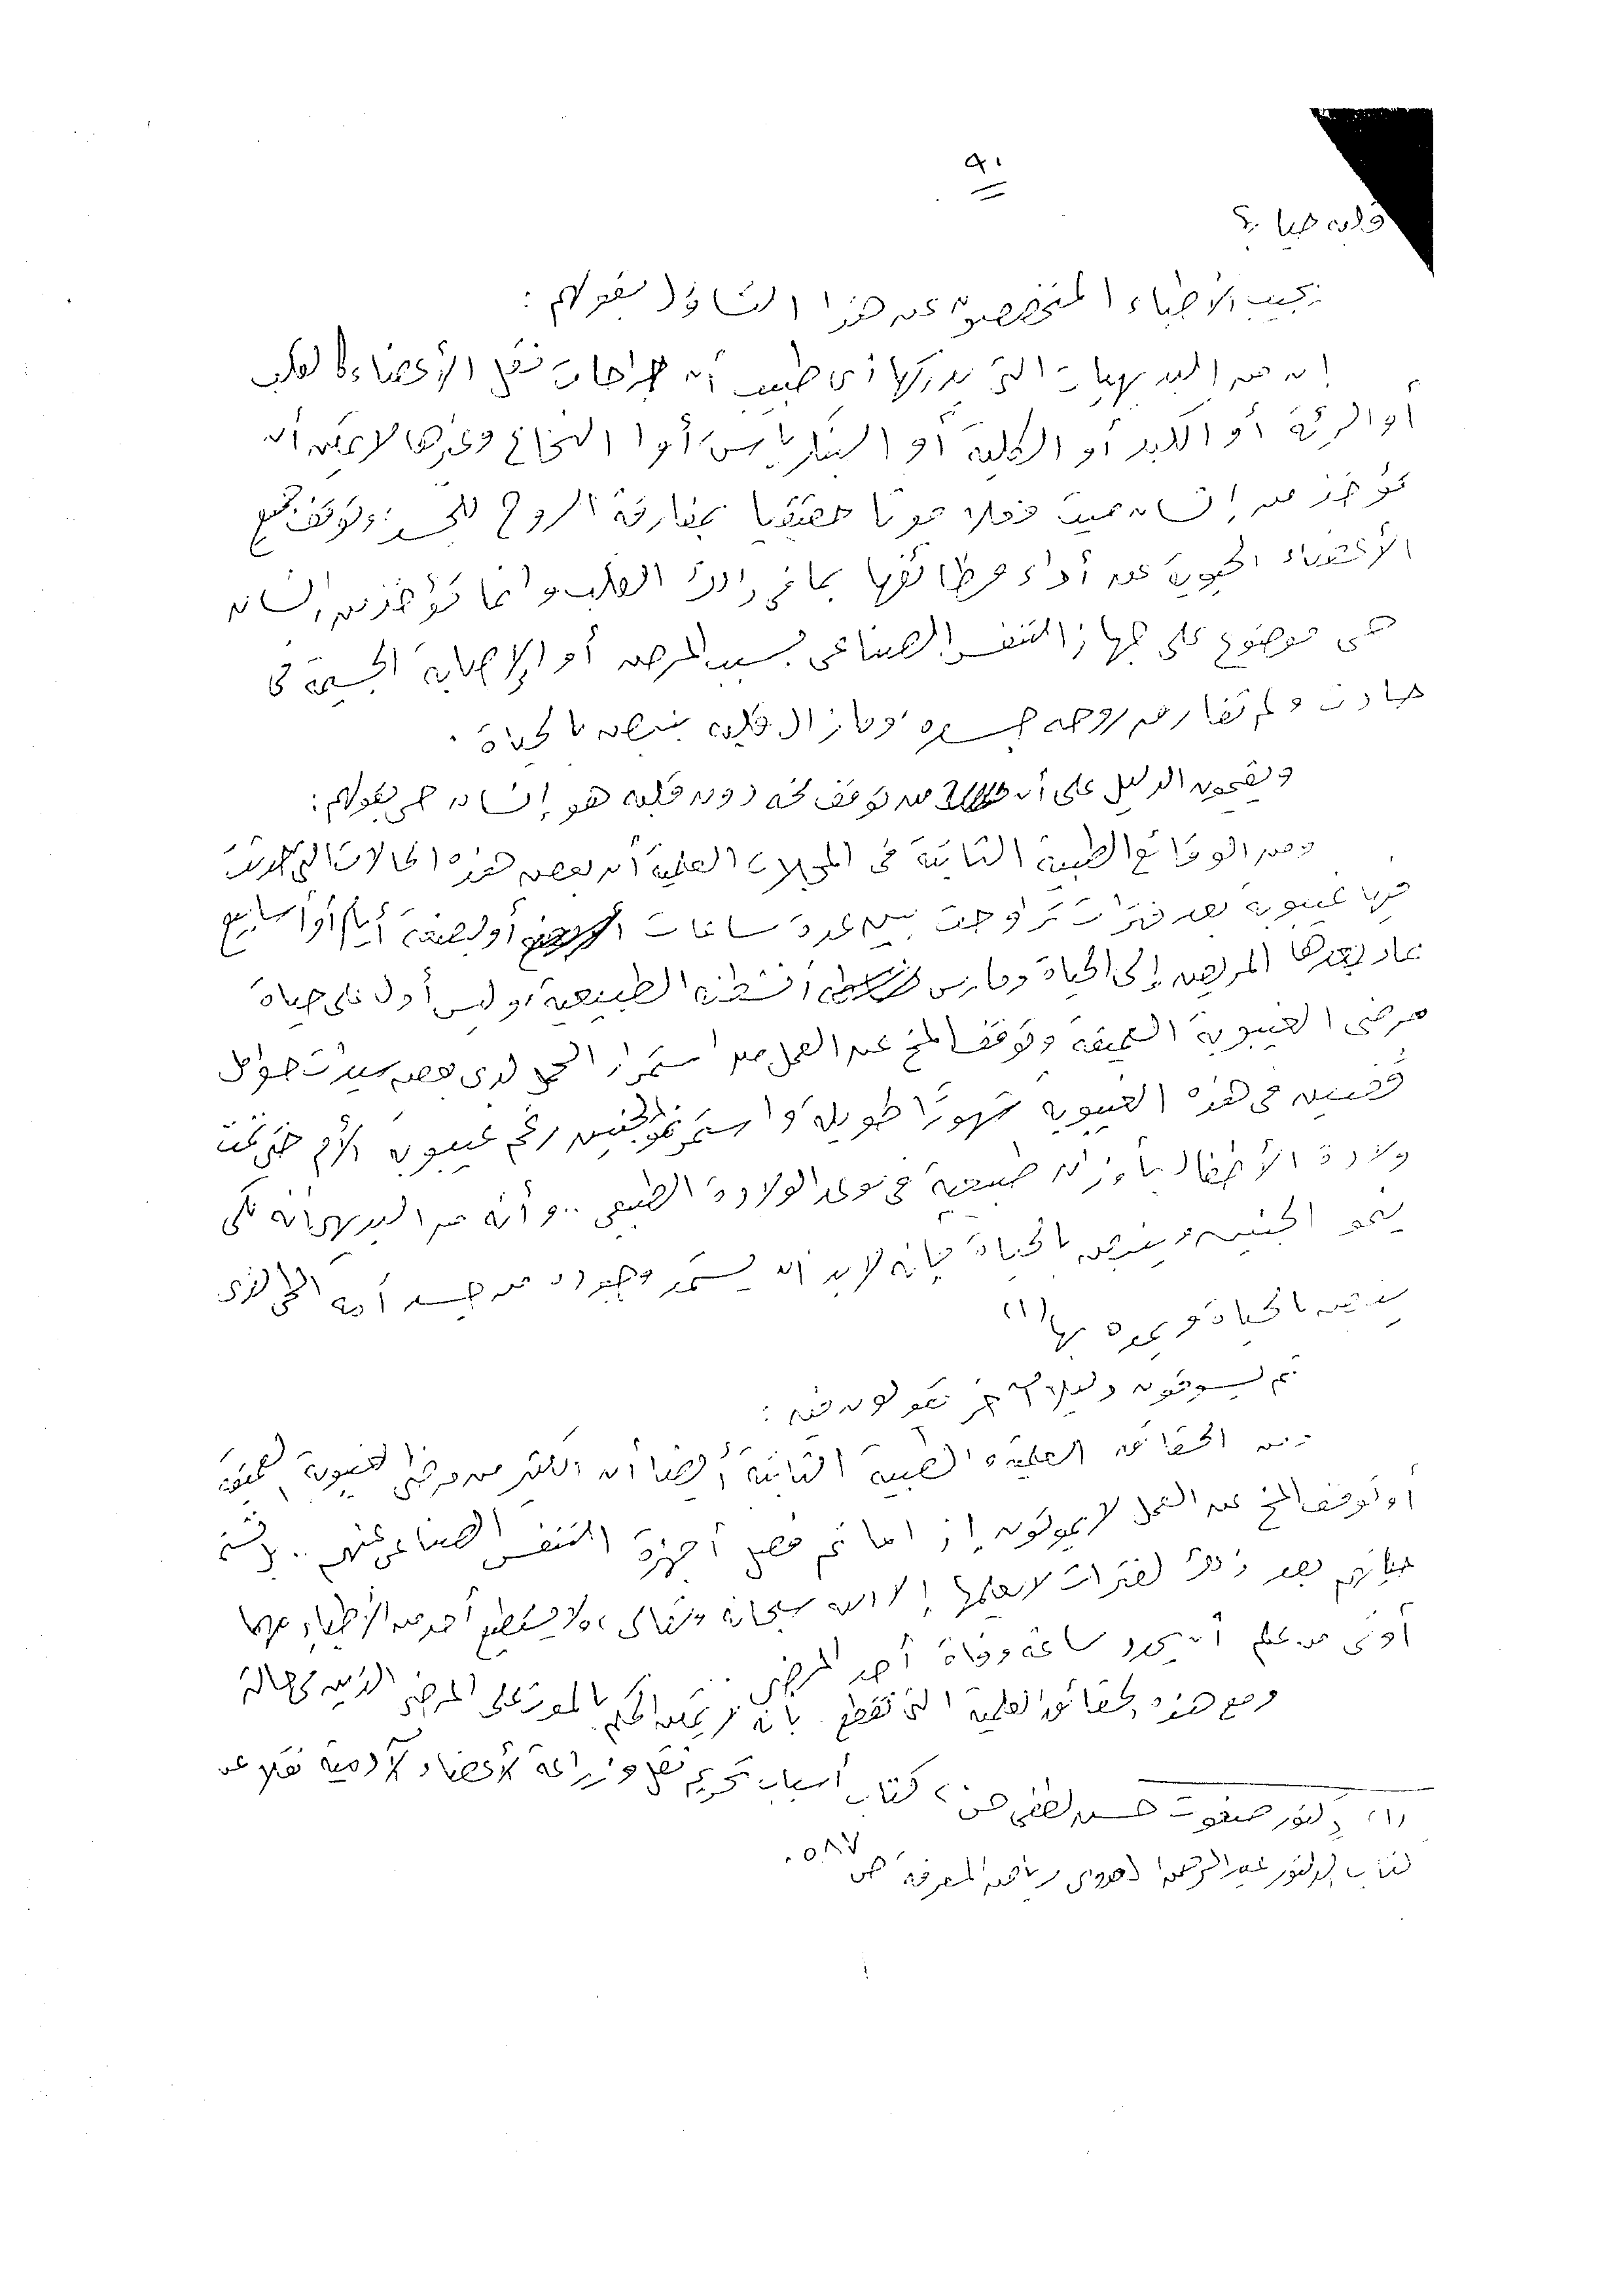 ٩٠
قلبه حيا ؟
يجيب الأطباء المتخصصون عن هذا التساؤل بقولهم :
إن من البديهيات التي يدركها أي طبيب أن جراحات نقل الأعضاء كالقلب
أو الرئة أو الكبد أو الكلية أو البنكرياس أوا النخاع وغيرها لا يمكن أن
تؤخذ من إنسان ميت فعلا موتا حقيقيا بمفارقة الروح للجسد وتوقف جميع
الأعضاء الحيوية عن أداء وظائفها بما في ذلك القلب وانما تؤخذ من إنسان
حى موضوع على جهاز التنفس الصناعى بسبب المرض أو الإصابة الجسيمة فى
حادث ولم تفارق روحه جسده وما زال قلبه ينبض بالحياة .
ويقيمون الدليل على أن من توقف مخه دون قلبه هو إنسان حى بقولهم :
ومن الوقائع الطبية الثابتة فى المجلات العلمية أن بعض هذه الحالات التى حدثت
فيها غيبوبة بعد فترات تراوحت بين عدة ساعات أو بضعة أيام أو أسابيع
عاد بعدها المريض إلى الحياة ومارس أنشطته الطبيعية، وليس أدل على حياة
مرضى الغيبوبة العميقة وتوقف المخ عن العمل من استمرار الحمل لدى بعض سيدات حوامل
قضين فى هذه الغيبوبة شهورًا طويلة واستمر نمو الجنين رغم غيبوبة الأم حتى تمت
ولادة الأطفال بأوزان طبيعية فى موعد الولادة الطبيعى .. وأنه من البديهى أنه لكى
ينمو الجنين وينبض بالحياة فإنه لابد أن يستمد وجوده من جسد أمه الحى الذى
ينبض بالحياة ويمده بها (١)
ثم يسوقون دليلا آخر يقولون فيه :
ومن الحقائق العلمية والطبية الثابتة أيضا أن الكثير من مرضى الغيبوبة العميقة
أو توقف المخ عن العمل لا يموتون إذا ما تم فصل أجهزة التنفس الصناعى عنهم .. بل تستمر
حياتهم بعد ذلك لفترات لا يعلمها إلا الله سبحانه وتعالى، ولا يستطيع أحد من الأطباء مهما
أوتى من علم أن يحدد ساعة وفاة أحد المرضى ..
ومع هذه الحقائق العلمية التى تقطع بأنه لا يمكن الحكم بالموت على المرضى الذين فى حالة
(١) دكتور صفوت حسن لطفى ، كتاب أسباب تحريم نقل وزراعة الأعضاء الآدمية نقلا عن
كتاب الدكتور عبد الرحمن العدوى رياض المعرفة ص ٥٨٧ .